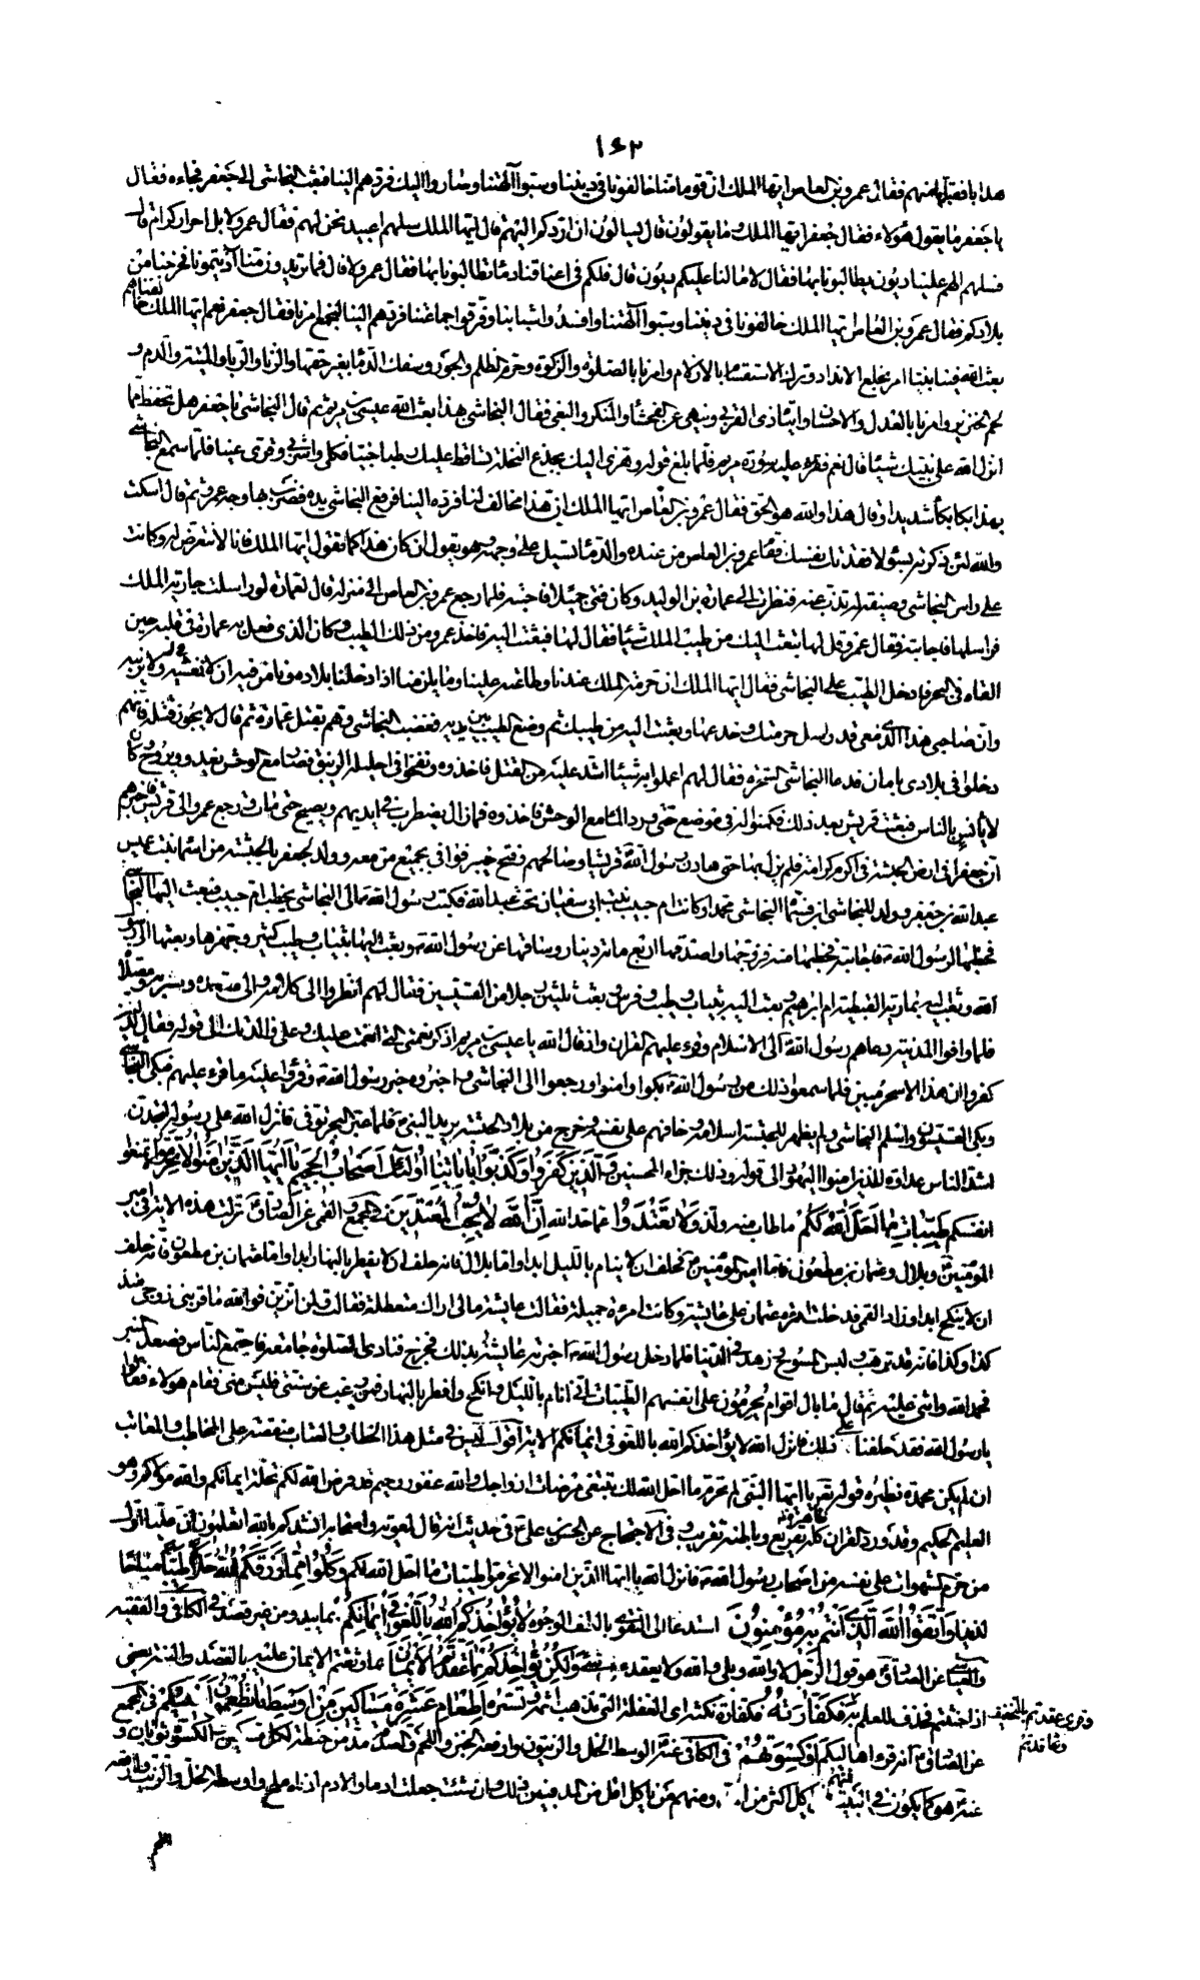 ١٤٣
هدايا فقبلها منهم فقال عمرو بن العاص ايها الملك ان قوما منا خالفونا في ديننا وسبوا آلهتنا وصاروا اليك فردهم الينا فبعث النجاشي الى جعفر فجاءه فقال
يا جعفر ما يقول هؤلاء فقال جعفر ايها الملك وما يقولون قال يسالون ان اردكم اليهم قال ايها الملك سلهم اعبيد نحن لهم فقال عمرو لا بل احرار كرام قال
فسلهم الهم علينا ديون يطالبونا بها فقال لا ما لنا عليكم ديون قال فلكم في اعناقنا دماء تطالبونا بها فقال عمرو لا قال فما تريدون منا آذيتمونا فخرجنا من
بلادكم فقال عمرو بن العاص ايها الملك خالفونا في ديننا وسبوا آلهتنا وافسدوا شبابنا وفرقوا جماعتنا فردهم الينا لنجمع امرنا فقال جعفر نعم ايها الملك خالفناهم
بعث الله فينا نبيا امر بخلع الانداد وترك الاستقسام بالازلام وامرنا بالصلوة والزكوة وحرم الظلم والجور وسفك الدماء بغير حقها والزنا والربا والميتة والدم و
لحم الخنزير وامرنا بالعدل والاحسان وايتاء ذي القربى وينهى عن الفحشاء والمنكر والبغي فقال النجاشي بهذا بعث الله عيسى بن مريم ثم قال النجاشي يا جعفر هل تحفظ مما
انزل الله على نبيك شيئا قال نعم فقرء عليه سورة مريم فلما بلغ قوله وهزي اليك بجذع النخلة تساقط عليك رطبا جنيا فكلي واشربي وقري عينا فلما سمع النجاشي
بهذا بكا بكاء شديدا وقال هذا والله هو الحق فقال عمرو بن العاص ايها الملك ان هذا مخالف لنا فرده الينا فرفع النجاشي يده فضرب بها وجه عمرو ثم قال اسكت
والله لئن ذكرته بسوء لافقدتك نفسك فقام عمرو بن العاص من عنده والدماء تسيل على وجهه وهو يقول ان كان هذا كما تقول ايها الملك فانا لا نتعرض له وكانت
على راس النجاشي وصيفة له تذب عنه فنظرت الى عمارة بن الوليد وكان فتى جميلا فاحبته فلما رجع عمرو بن العاص الى منزله قال لعمارة لو راسلت جارية الملك
فراسلها فاجابته فقال عمرو قل لها تبعث اليك من طيب الملك شيئا فقال لها فبعثت اليه فاخذ عمرو من ذلك الطيب وكان الذي فعل به عمارة في قلبه حين
القاه في البحر فادخل الطيب على النجاشي فقال ايها الملك ان حرمة الملك عندنا وطاعته علينا وما يلزمنا اذا دخلنا بلاده ونامن فيه ان لا نغشه ولا نريبه
وان صاحبي هذا الذي معي قد راسل حرمتك وخدعها وبعثت اليه من طيبك ثم وضع الطيب بين يديه فغضب النجاشي وهم بقتل عمارة ثم قال لا يجوز قتله فانهم
دخلوا في بلادي بامان فدعا النجاشي السحرة فقال لهم اعملوا به شيئا اشد عليه من القتل فاخذوه ونفخوا في احليله الزيبق فصار مع الوحش يغدو ويروح وكان
لا يانس بالناس فبعثت قريش بعد ذلك فكمنوا له في موضع حتى ورد الماء مع الوحش فاخذوه فما زال يضطرب في ايديهم ويصيح حتى مات ورجع عمرو الى قريش فاخبرهم
ان جعفرا في ارض الحبشة في اكرم كرامة فلم يزل بها حتى هادن رسول الله قريشا وصالحهم وفتح خيبر فوافى بجميع من معه وولد لجعفر بالحبشة من اسماء بنت عميس
عبد الله بن جعفر وولد للنجاشي ابن فسماه النجاشي محمدا وكانت ام حبيب بنت ابي سفيان تحت عبد الله فكتب رسول الله الى النجاشي يخطب ام حبيب فبعث اليها النجاشي
فخطبها لرسول الله فاجابته فخطبها منه فزوجها واصدقها اربع مائة دينار وساقها عن رسول الله وبعث اليها بثياب وطيب كثير وجهزها وبعثها الى رسول
الله وبعث اليه بمارية القبطية ام ابرهيم وبعث اليه بثياب وطيب وفرس وبعث ثلثين رجلا من القسيسين فقال لهم انظروا الى كلامه والى مقعده ومشربه ومصلاه
فلما وافوا المدينة دعاهم رسول الله الى الاسلام وقرء عليهم القران واذ قال الله يا عيسى بن مريم اذكر نعمتي التي انعمت عليك وعلى والدتك الى قوله فقال الذين
كفروا ان هذا الا سحر مبين فلما سمعوا ذلك من رسول الله بكوا وامنوا ورجعوا الى النجاشي واخبروه خبر رسول الله وقرؤا عليه ما قرء عليهم فبكى النجاشي
وبكى القسيسون واسلم النجاشي ولم يظهر للحبشة اسلامه وخافهم على نفسه وخرج من بلاد الحبشة يريد النبي فلما عبر البحر توفي فانزل الله على رسوله لتجدن
اشد الناس عداوة للذين امنوا اليهود الى قوله وذلك جزاء المحسنين وَالَّذينَ كَفَرُوا وَكَذَّبُوا بِآياتِنا اُولئِكَ اَصْحابُ الْجَحيمِ يا اَيُّهَا الَّذينَ امَنُوا لا تُحَرِّمُوا لا تمنعوا
انفسكم طَيِّباتِ ما اَحَلَّ اللهُ لَكُمْ ما طاب منه ولذ وَلا تَعْتَدُوا عما حد الله اِنَّ اللهَ لا يُحِبُّ الْمُعْتَدينَ في المجمع والقمي عن الصادق نزلت هذه الاية في امير
المؤمنين وبلال وعثمان بن مظعون فاما امير المؤمنين فحلف ان لا ينام بالليل ابدا واما بلال فانه حلف ان لا يفطر بالنهار ابدا واما عثمان بن مظعون فانه حلف
ان لا ينكح ابدا وزاد القمي فدخلت امرءة عثمان على عايشة وكانت امرءة جميلة فقالت عايشة ما لي اراك متعطلة فقالت ولمن اتزين فوالله ما قربني زوجي منذ
كذا وكذا فانه قد ترهب ولبس المسوح وزهد في الدنيا فلما دخل رسول الله اخبرته عايشة بذلك فخرج فنادى الصلوة جامعة فاجتمع الناس فصعد المنبر
فحمد الله واثنى عليه ثم قال ما بال اقوام يحرمون على انفسهم الطيبات اني انام بالليل وانكح وافطر بالنهار فمن رغب عن سنتي فليس مني فقام هؤلاء فقالوا
يا رسول الله فقد حلفنا على ذلك فانزل الله لا يؤاخذكم الله باللغو في ايمانكم الاية اقول ليس في مثل هذا الخطاب والعتاب منقصة على المخاطب والمعاتب
ان لم يكن محمدة نظيره قوله تعالى يا ايها النبي لم تحرم ما احل الله لك تبتغي مرضات ازواجك والله غفور رحيم قد فرض الله لكم تحلة ايمانكم والله موليكم وهو
العليم الحكيم وقد ورد القران كله ظاهره تقريع وباطنه تقريب وفي الاحتجاج عن الحسن بن علي في حديث انه قال لمعوية واصحابه انشدكم بالله اتعلمون ان عليا اول
من حرم الشهوات على نفسه من اصحاب رسول الله فانزل الله يا ايها الذين امنوا لا تحرموا طيبات ما احل الله لكم وَكُلُوا مِمّا رَزَقَكُمُ اللهُ حَلالاً طَيِّباً مباحا
لذيذا وَاتَّقُوا اللهَ الَّذي اَنْتُمْ بِه مُؤْمِنُونَ استدعا الى التقوى بالطف الوجوه لا يُؤاخِذُكُمُ اللهُ بِاللَّغْوِ في اَيْمانِكُمْ بما يبدو من غير قصد في الكافي والفقيه
والعياشي عن الصادق هو قول الرجل لا والله وبلى والله ولا يعقد وَلكِنْ يُؤاخِذُكُمْ بِما عَقَّدْتُمُ الْاَيْمانَ بما وثقتم الايمان عليه بالقصد والنية يعني
اذا حنثتم فحذف للعلم به فَكَفّارَتُهُ فكفارة نكثه اي الفعلة التي تذهب اثمه وتستره اِطْعامُ عَشَرَةِ مَساكينَ مِنْ اَوْسَطِ ما تُطْعِمُونَ اَهْليكُمْ في المجمع
عن الصادق انه قرء اهاليكم اَوْ كِسْوَتُهُمْ في الكافي عنه الوسط الخل والزيتون وارفعه الخبز واللحم والصدقة مد من حنطة لكل مسكين والكسوة ثوبان و
عنه هو كما يكون في البيت منهم ياكل اكثر من المد ومنهم من ياكل اقل من المد فبين ذلك وان شئت جعلت ادما والادم ادناه ملح واوسطه الخل والزيت وارفعه
وقرئ عقدتم بالتخفيف
وعاقدتم
اللحم